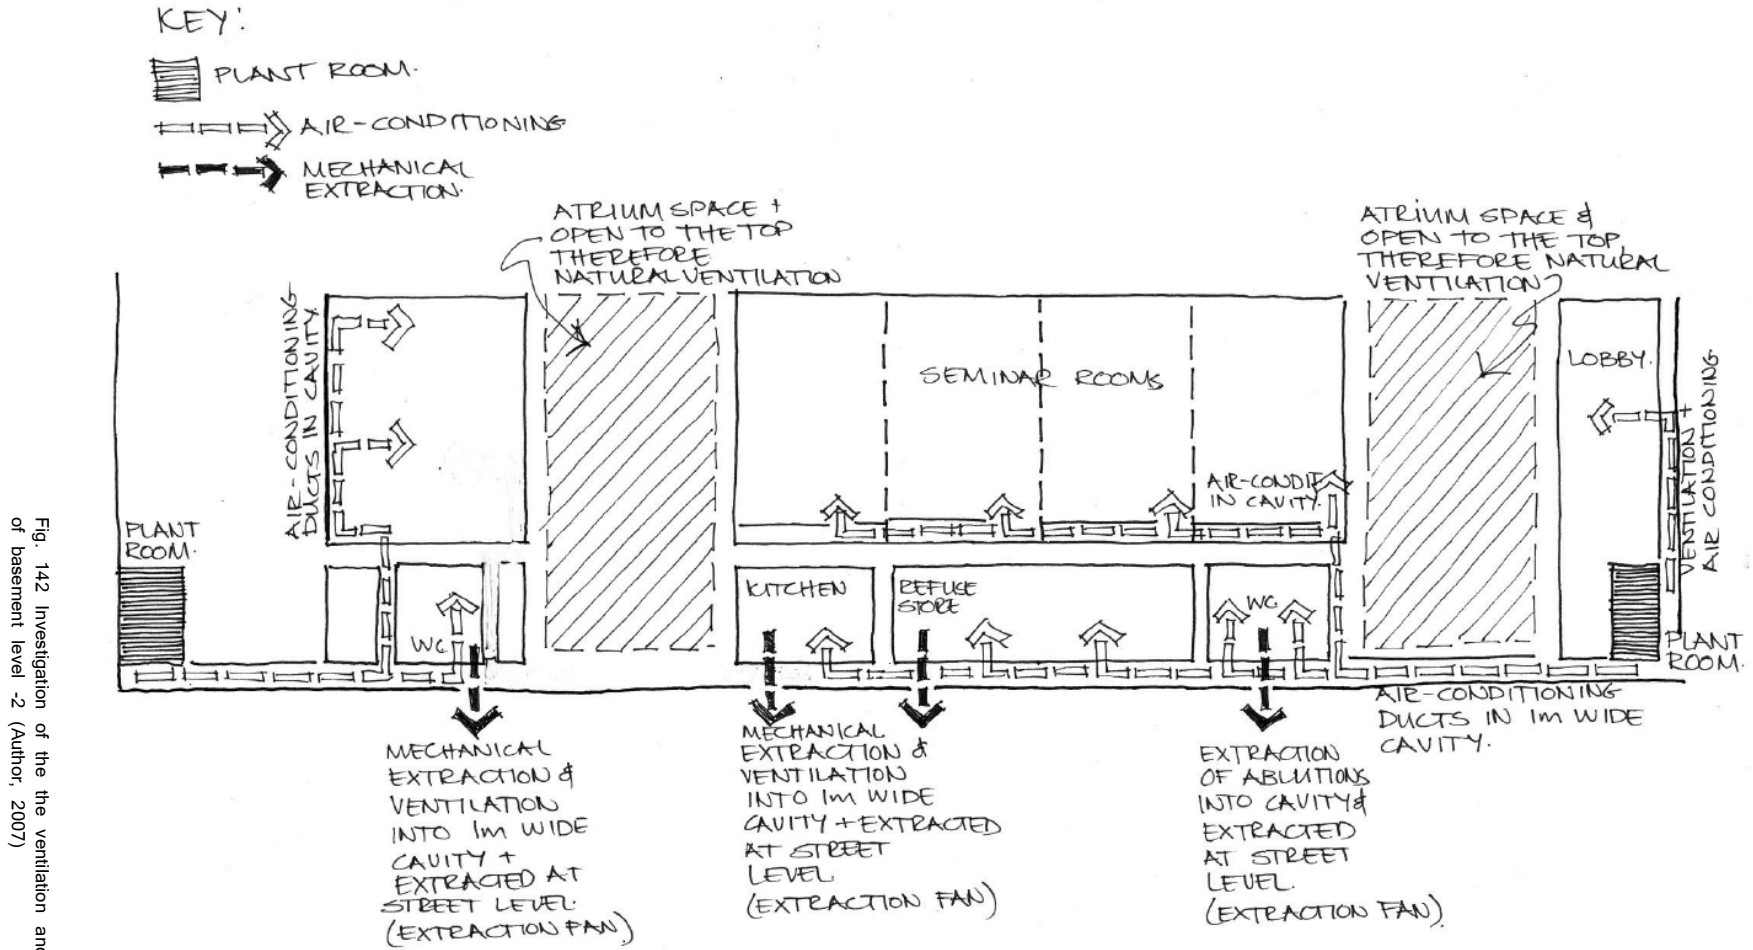 KEY:
PLANT ROOM.
AIR-CONDITIONING
MECHANICAL
EXTRACTION.
ATRIUM SPACE +
OPEN TO THE TOP
THEREFORE
NATURAL VENTILATION
ATRIUM SPACE &
OPEN TO THE TOP,
THEREFORE NATURAL
VENTILATION
AIR-CONDITIONING
DUCTS IN CAVITY.
SEMINAR ROOMS
LOBBY.
VENTILATION +
AIR CONDITIONING
AIR-CONDIT
IN CAVITY.
PLANT
ROOM.
WC
KITCHEN
REFUSE
STORE
WC
PLANT
ROOM.
AIR-CONDITIONING
DUCTS IN 1m WIDE
CAVITY.
MECHANICAL
EXTRACTION &
VENTILATION
INTO 1m WIDE
CAVITY +
EXTRACTED AT
STREET LEVEL.
(EXTRACTION FAN)
MECHANICAL
EXTRACTION &
VENTILATION
INTO 1m WIDE
CAVITY + EXTRACTED
AT STREET
LEVEL.
(EXTRACTION FAN)
EXTRACTION
OF ABLUTIONS
INTO CAVITY &
EXTRACTED
AT STREET
LEVEL.
(EXTRACTION FAN)
Fig. 142 Investigation of the the ventilation and
of basement level -2 (Author, 2007)